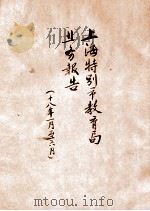 上海特别市教育局
业务报告
（十八年一月至六月）
mtoou.info
mtoou.info